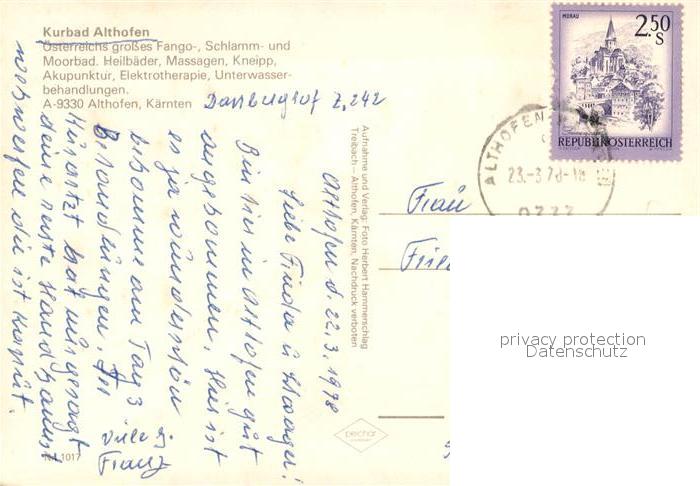 Kurbad Althofen
Österreichs großes Fango-, Schlamm- und
Moorbad. Heilbäder, Massagen, Kneipp,
Akupunktur, Elektrotherapie, Unterwasser-
behandlungen.
A-9330 Althofen, Kärnten
Z. 242
Althofen d. 22.3.1978
Liebe Frieda u
Bin hier in Althofen gut
angekommen. Hier ist
es ja wunderschön
bekomme am Tag 3
Behandlungen. Der
Kurarzt hat mir gesagt
deine erste Hand kannst
wegwerfen die ist kaput.
Viele
Franz
Nr. 1017
Aufnahme und Verlag: Foto Herbert Hammerschlag
Treibach - Althofen, Kärnten, Nachdruck verboten
pechar
MURAU
2.50
S
REPUBLIK ÖSTERREICH
ALTHOFEN
23.-3.78-18
Frau
privacy protection
Datenschutz